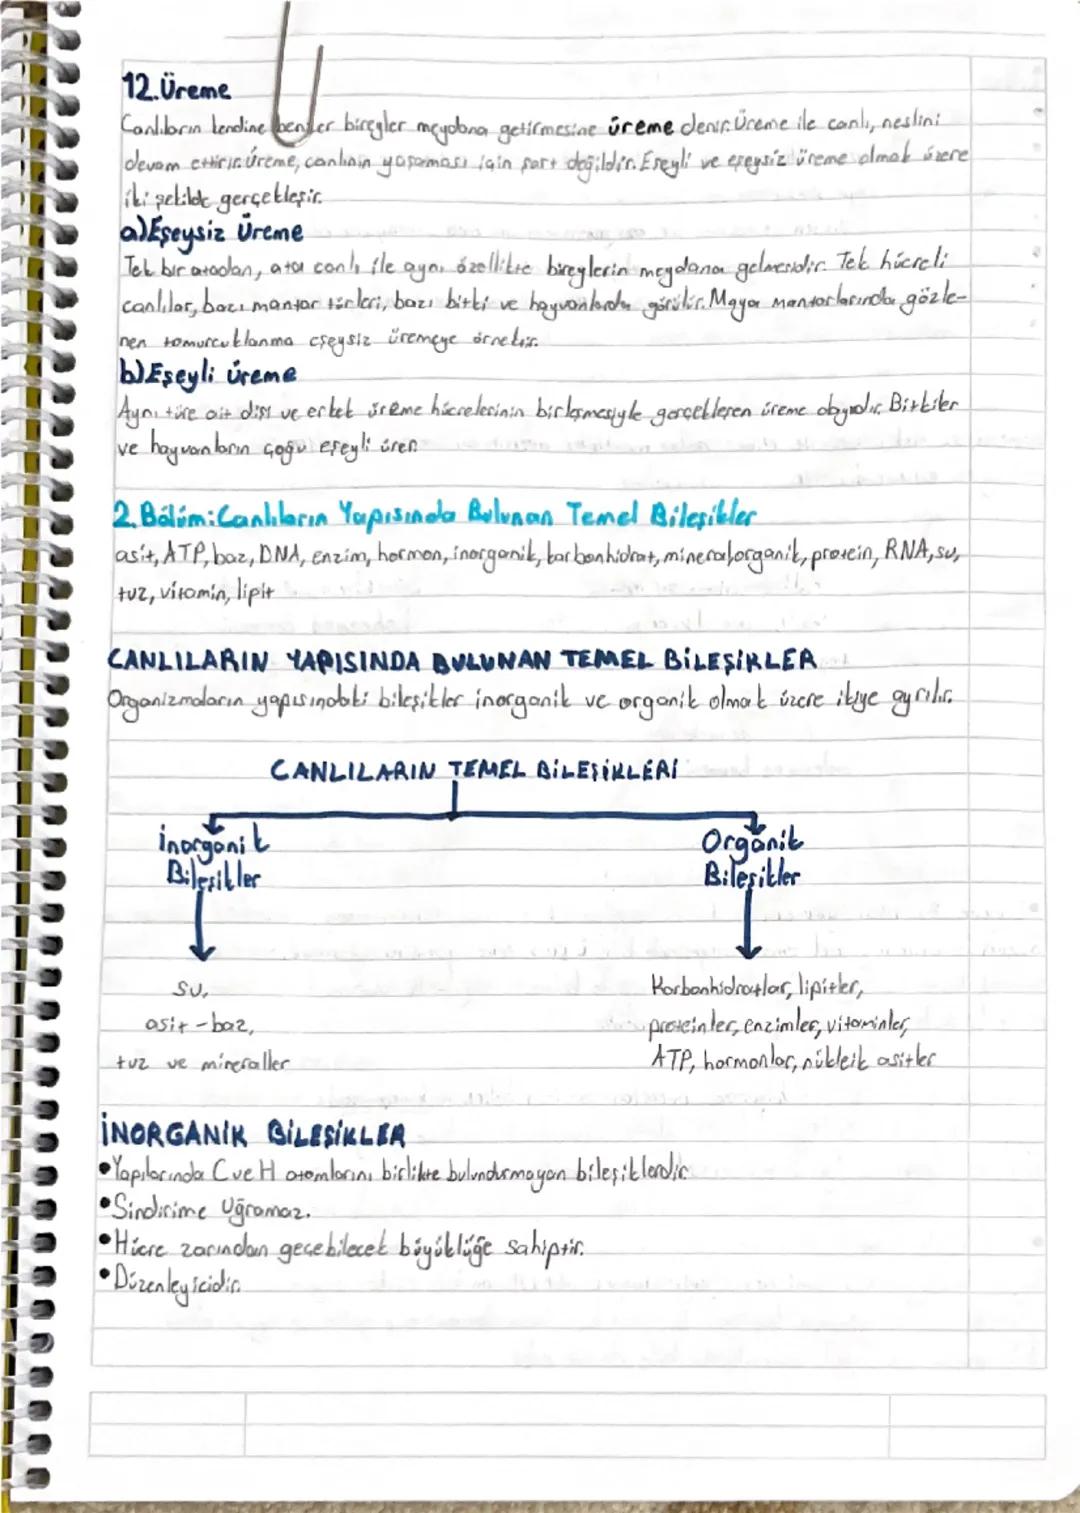 12.Üreme
Canlıların kendine benzer bireyler meydana getirmesine üreme denir. Üreme ile canlı, neslini
devam ettirir. Üreme, canlının yaşaması için şart değildir. Eşeyli ve eşeysiz üreme olmak üzere
iki şekilde gerçekleşir.
a)Eşeysiz Üreme
Tek bir atadan, ata canlı ile aynı özellikte bireylerin meydana gelmesidir. Tek hücreli
canlılar, bazı mantar türleri, bazı bitki ve hayvanlarda görülür. Maya mantarlarında gözle-
nen tomurcuklanma eşeysiz üremeye örnektir.
b)Eşeyli üreme
Aynı türe ait dişi ve erkek üreme hücrelerinin birleşmesiyle gerçekleşen üreme olayıdır. Bitkiler
ve hayvanların çoğu eşeyli ürer.
2.Bölüm:Canlıların Yapısında Bulunan Temel Bileşikler
asit, ATP, baz, DNA, enzim, hormon, inorganik, karbonhidrat, mineral, organik, protein, RNA, su,
tuz, vitamin, lipit
CANLILARIN YAPISINDA BULUNAN TEMEL BİLEŞİKLER
Organizmaların yapısındaki bileşikler inorganik ve organik olmak üzere ikiye ayrılır.
CANLILARIN TEMEL BİLEŞİKLERİ
İnorganik
Bileşikler
su,
asit-baz,
tuz ve mineraller
Organik
Bileşikler
Karbonhidratlar, lipitler,
proteinler, enzimler, vitaminler,
ATP, hormonlar, nükleik asitler
İNORGANİK BİLEŞİKLER
•Yapılarında C ve H atomlarını birlikte bulundurmayan bileşiklerdir.
•Sindirime Uğramaz.
•Hücre zarından geçebilecek büyüklüğe sahiptir.
•Düzenleyicidir.